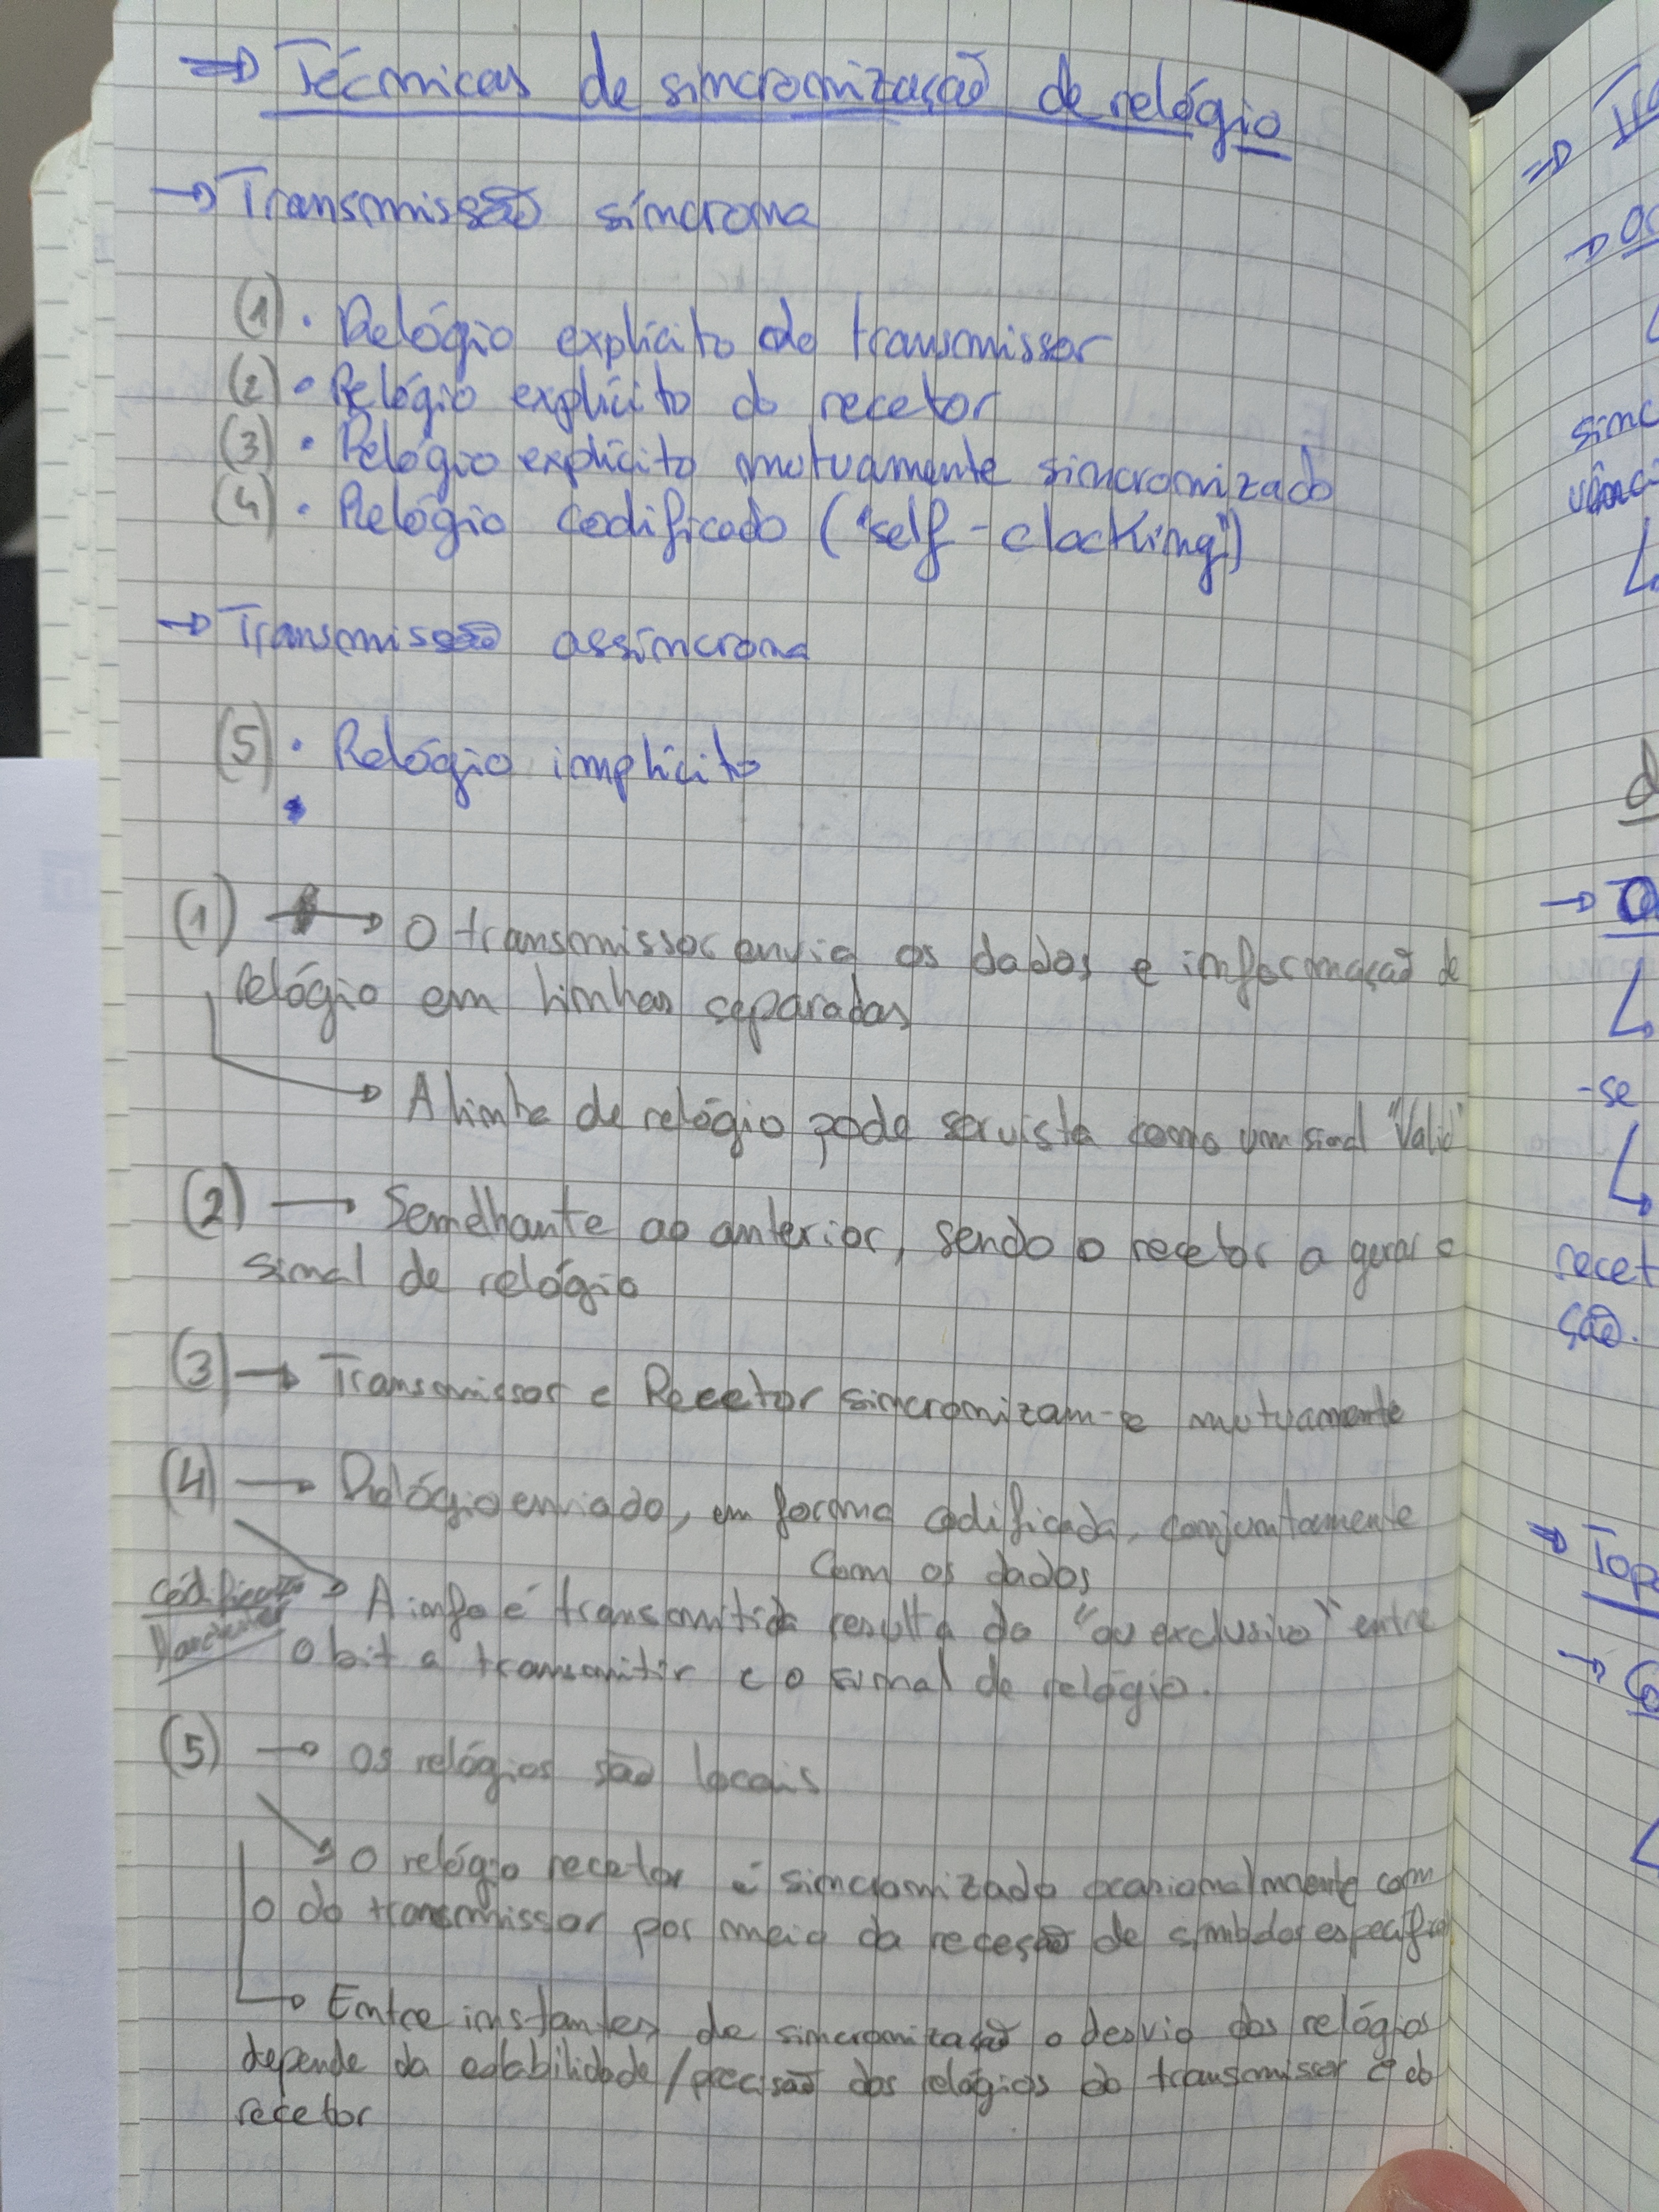 ⇒ Técnicas de sincronização de relógio
→ Transmissão síncrona
(1) • Relógio explícito do transmissor
(2) • Relógio explícito do recetor
(3) • Relógio explícito mutuamente sincronizado
(4) • Relógio codificado ("self-clocking")
→ Transmissão assíncrona
(5) • Relógio implícito
•
(1) → O transmissor envia os dados e informação de
relógio em linhas separadas
→ A linha de relógio pode ser vista como um sinal "Valid"
(2) — Semelhante ao anterior, sendo o recetor a gerar o
sinal de relógio
(3) → Transmissor e Recetor sincronizam-se mutuamente
(4) — Relógio enviado, em forma codificada, conjuntamente
com os dados
Codificação
Manchester
→ A info é transmitida resulta do "ou exclusivo" entre
o bit a transmitir e o sinal de relógio.
(5) → Os relógios são locais
→ O relógio recetor é sincronizado ocasionalmente com
o do transmissor por meio da receção de símbolos específicos
→ Entre instantes de sincronização o desvio dos relógios
depende da estabilidade/precisão dos relógios do transmissor e do
recetor
⇒
→
sinc
d
→
-se
recet
ção.
⇒ Top
→ Co